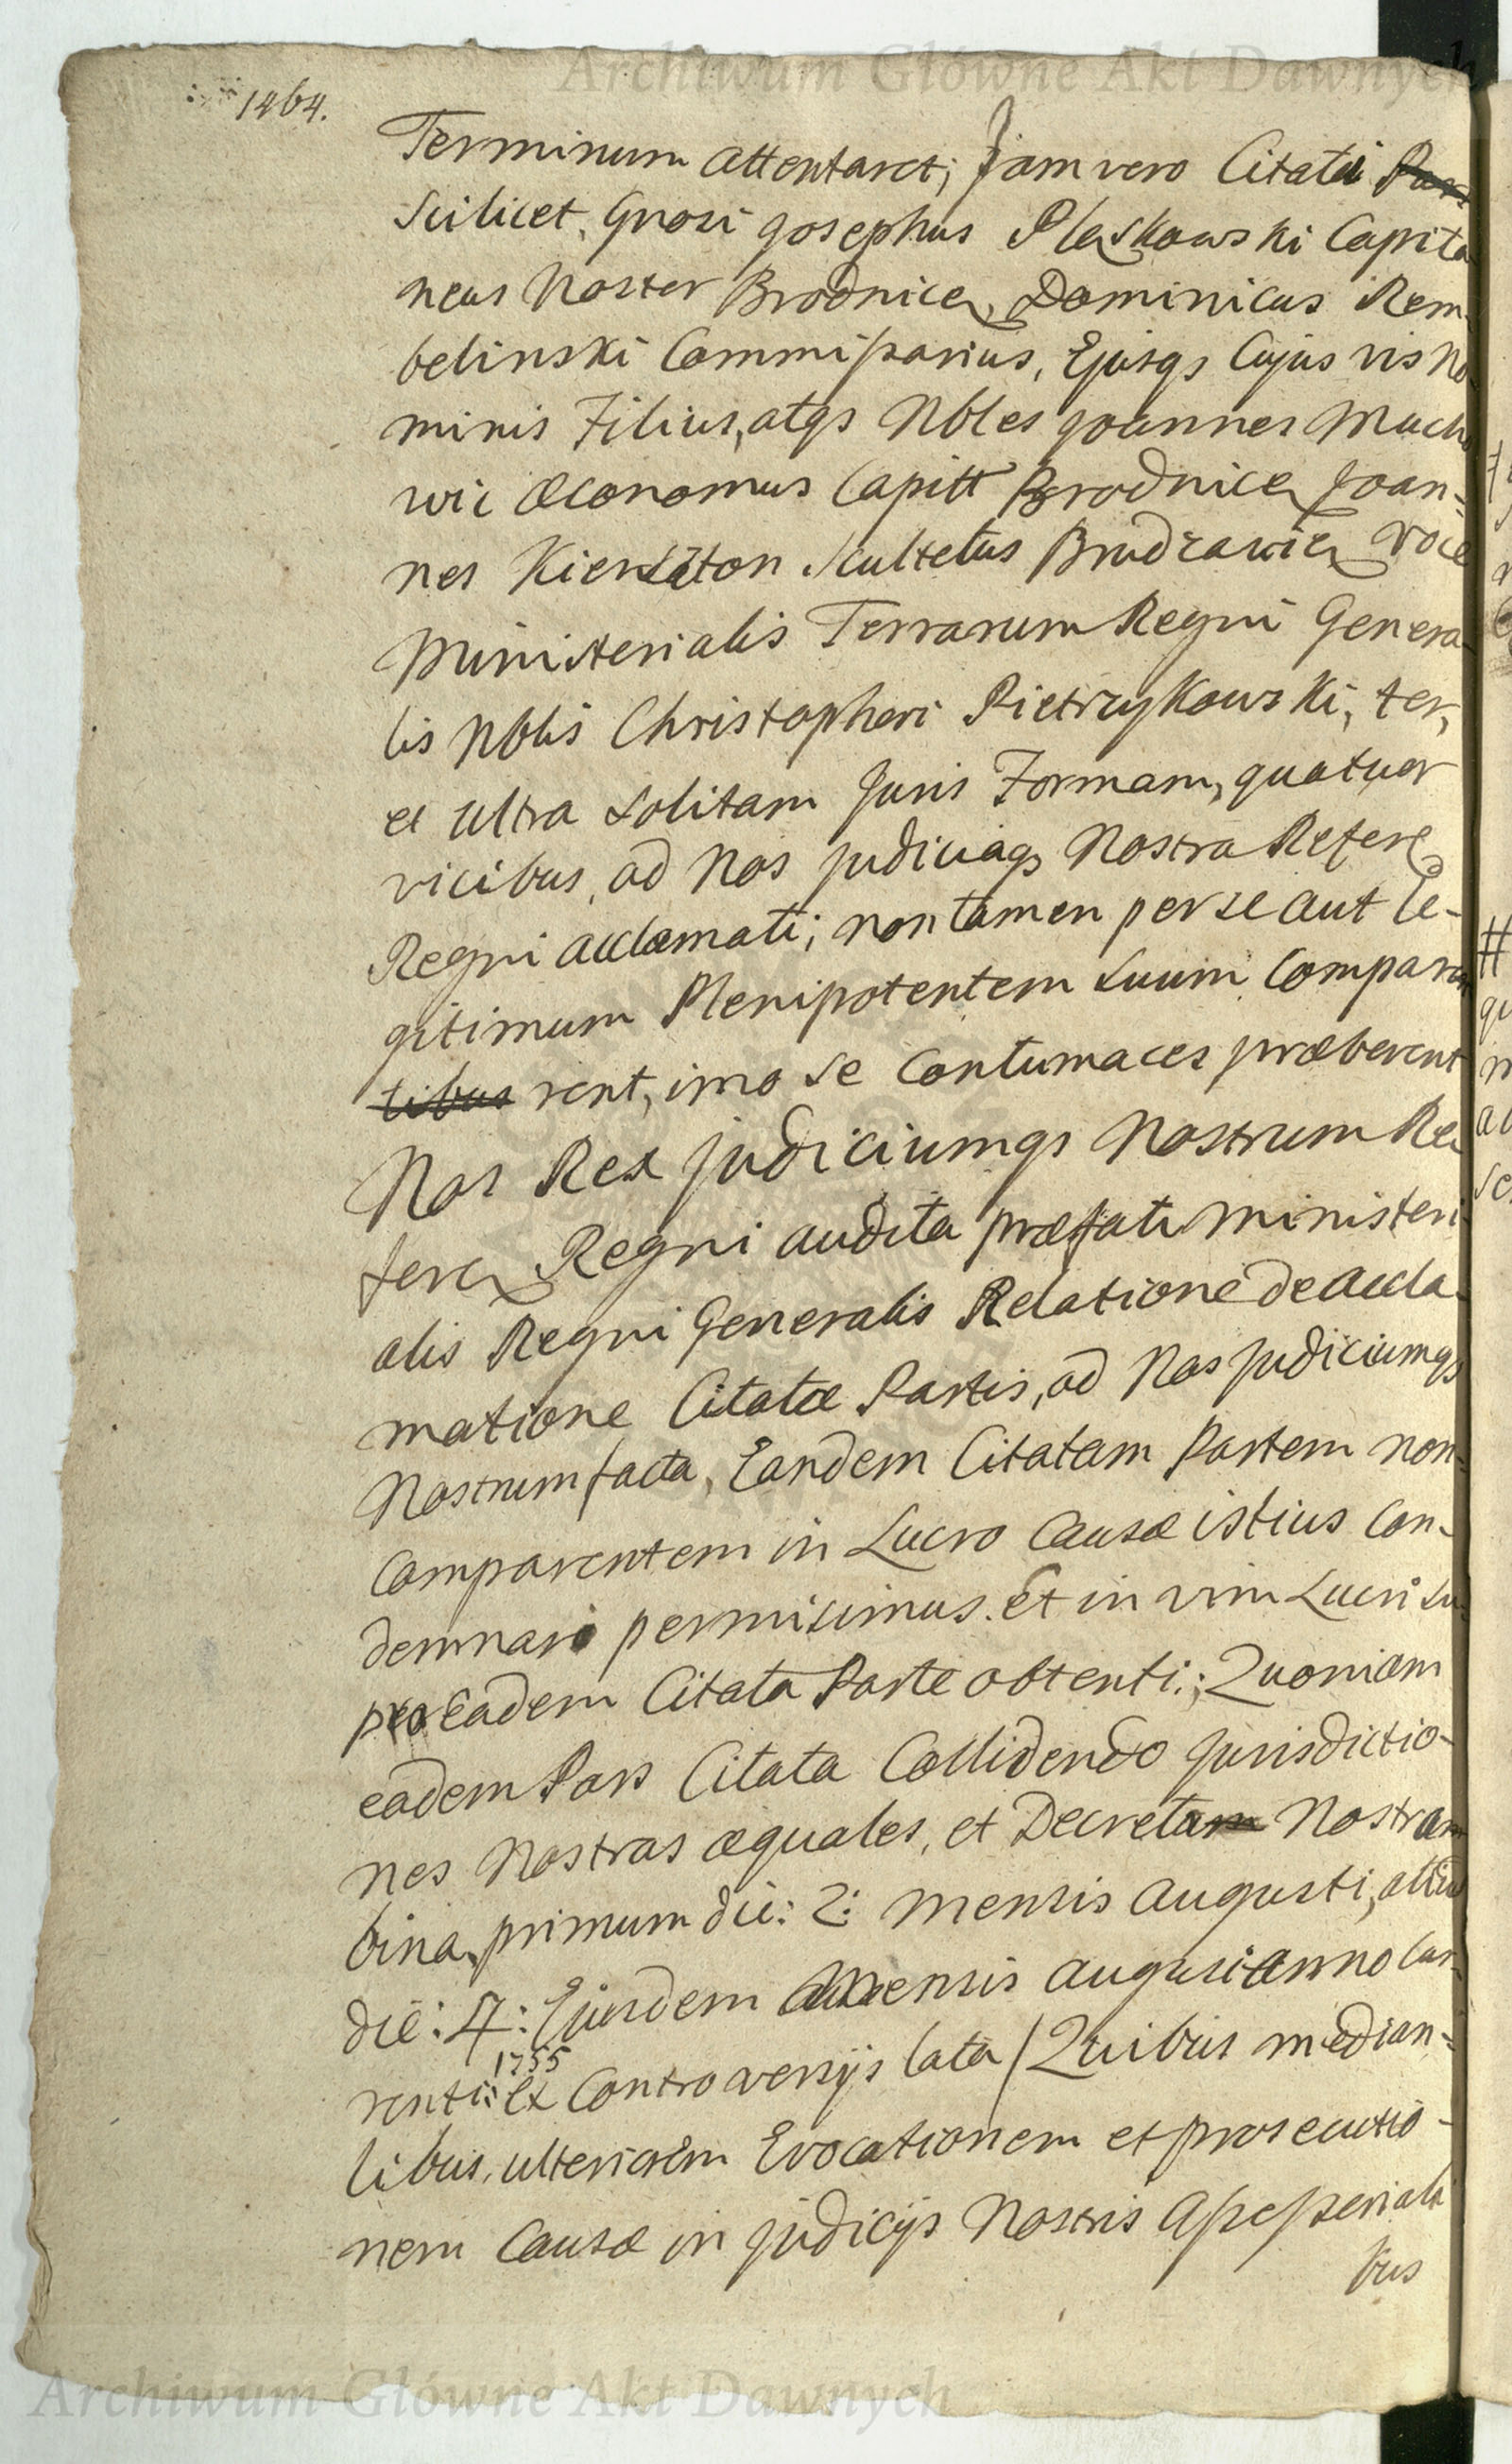 Archiwum Główne Akt Dawnych
1464.
Terminum attentaret; Jam vero Citati Pars
Scilicet, Gnosi Josephus Plaskowski Capita
neus Noster Brodnicen, Dominicus Rem-
belinski Commissarius, Ejusqs Cujus vis No
minis Filius, atqs Nbles Joannes Macho
wic Œconomus Capitt Brodnicen Joan-
nes Scultetus voce
Ministerialis Terrarum Regni Genera
lis Nblis Christopheri Pietrzykowski, ter,
et ultra solitam Juris Formam, quatuor
vicibus, ad Nos Judiciaqs Nostra Referen
Regni acclamati; non tamen per se aut Le-
gitimum Plenipotentem suum Compare
tibus rent, imo se Contumaces præberent
Nos Rex Judiciumqs Nostrum Re
feren Regni audita præfati Ministeri
alis Regni Generalis Relatione de accla
matione Citatæ Partis, ad Nos Judiciumqs
Nostrum facta, Eandem Citatam Partem non-
Comparentem in Lucro Causæ istius Con-
demnari permisimus. Et in vim Lucri su
pro Eadem Citata Parte obtenti; Quoniam
eadem Pars Citata Collidendo Jurisdictio-
nes Nostras æquales, et Decreta Nostra
bina, primum die: 2: Mensis Augusti,
die: 4: Ejusdem Mensis Augusti Anno Cur-
renti: 1755 ex Controversijs lata / Quibus median-
libus, ulteriorem Evocationem et prosecutio-
nem Causæ in Judicijs Nostris Assessoriali
bus
Archiwum Główne Akt Dawnych